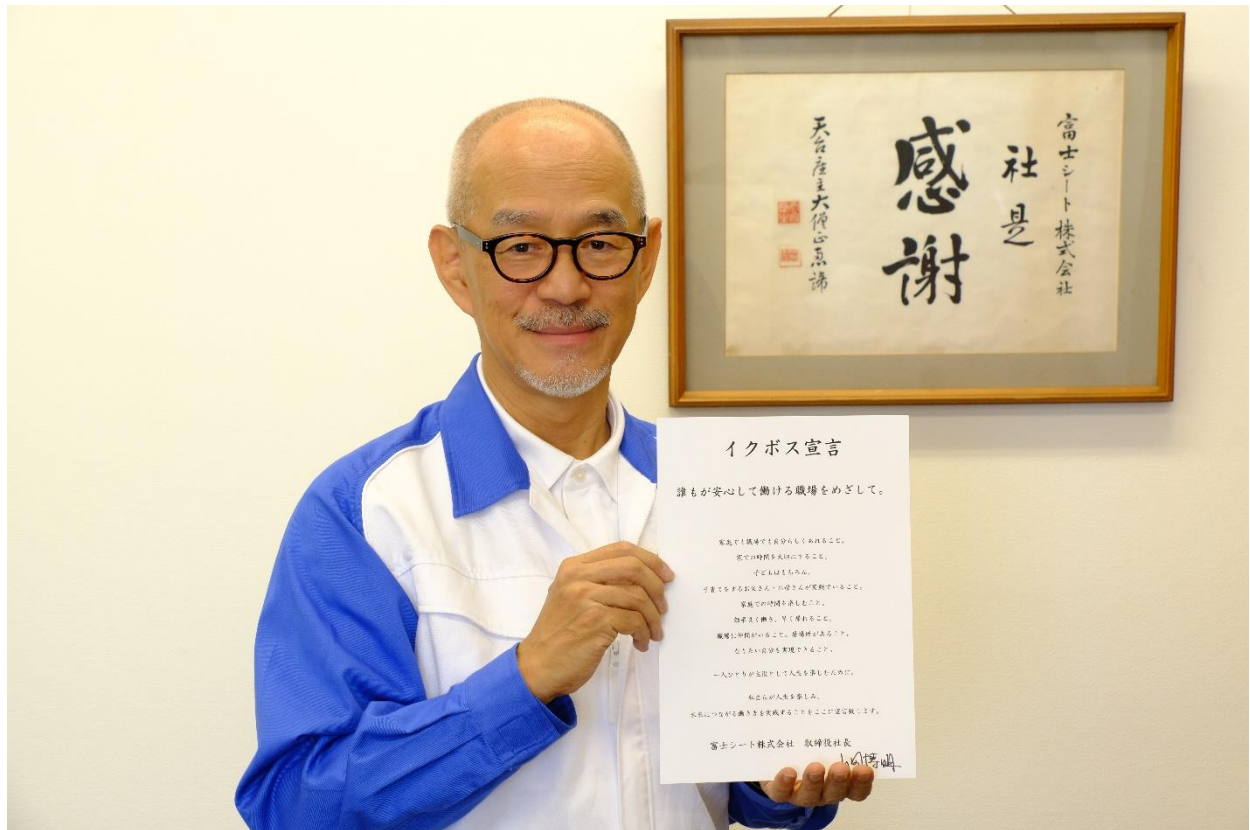 富士シート株式会社
社是
感謝
天台座主大僧正恵諦
イクボス宣言
誰もが安心して働ける職場をめざして。
家庭でも職場でも自分らしくあれること。
家での時間を大切にすること。
子どもはもちろん、
子育てをするお父さん・お母さんが笑顔でいること。
家庭での時間を楽しむこと。
効率良く働き、早く帰れること。
職場に仲間がいること。居場所があること。
なりたい自分を実現できること。
一人ひとりが主役として人生を楽しむために。
私自らが人生を楽しみ、
成長につながる働き方を実践することをここに宣言致します。
富士シート株式会社 取締役社長